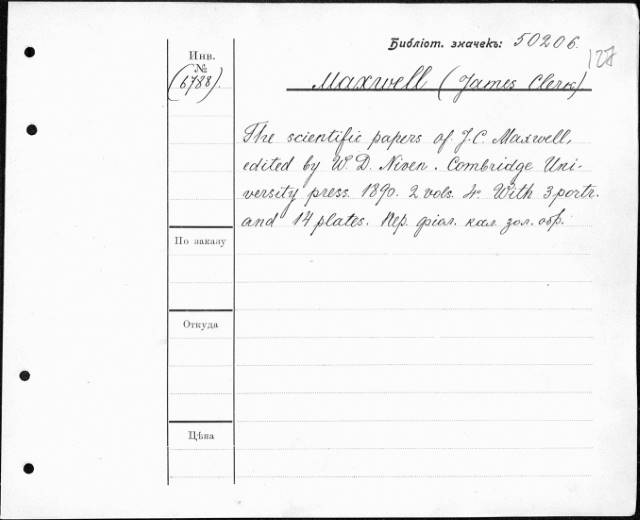 Библіот. значекъ: 50206.
128
Инв.
№
(6788).
Maxwell (James Clerk)
The scientific papers of J. C. Maxwell,
edited by W. D. Niven. Cambridge Uni-
versity press. 1890. 2 vols. 4º. With 3 portr.
and 14 plates. Пер. фіол. кал. зол. обр.
По заказу
Откуда
Цѣна